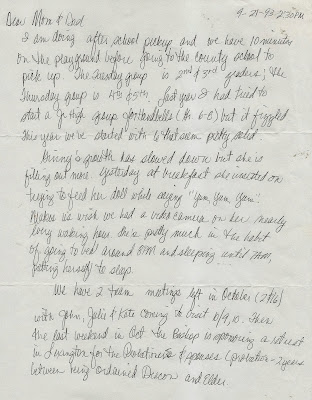 9-28-93 2:30PM
Dear Mom & Dad,
I am doing after school pickup and we have 10 minutes
on the playground before going to the county school to
pick up. The Tuesday group is 2nd & 3rd graders; the
Thursday group is 4th & 5th. Last year I had tried to
start a Jr High group for (6-8) but it fizzled
This year we've started with 6 that seem pretty solid.
growth has slowed down but she is
filling out more. Yesterday at breakfast she insisted on
trying to feed her doll while saying "Yum, Yum, Yum".
Makes us wish we had a video camera on her nearly
every waking hour. She's pretty much in the habit
of going to bed around 8PM and sleeping until 7AM,
putting herself to sleep.
We have 2 team meetings left in October (2, 16)
with John, Julie & Kate coming to visit 8/9, 10. Then
the last weekend in Oct the Bishop is sponsoring a retreat
in Lexington for the Probationers & spouses (probation - 2 years
between being ordained Deacon and Elder.